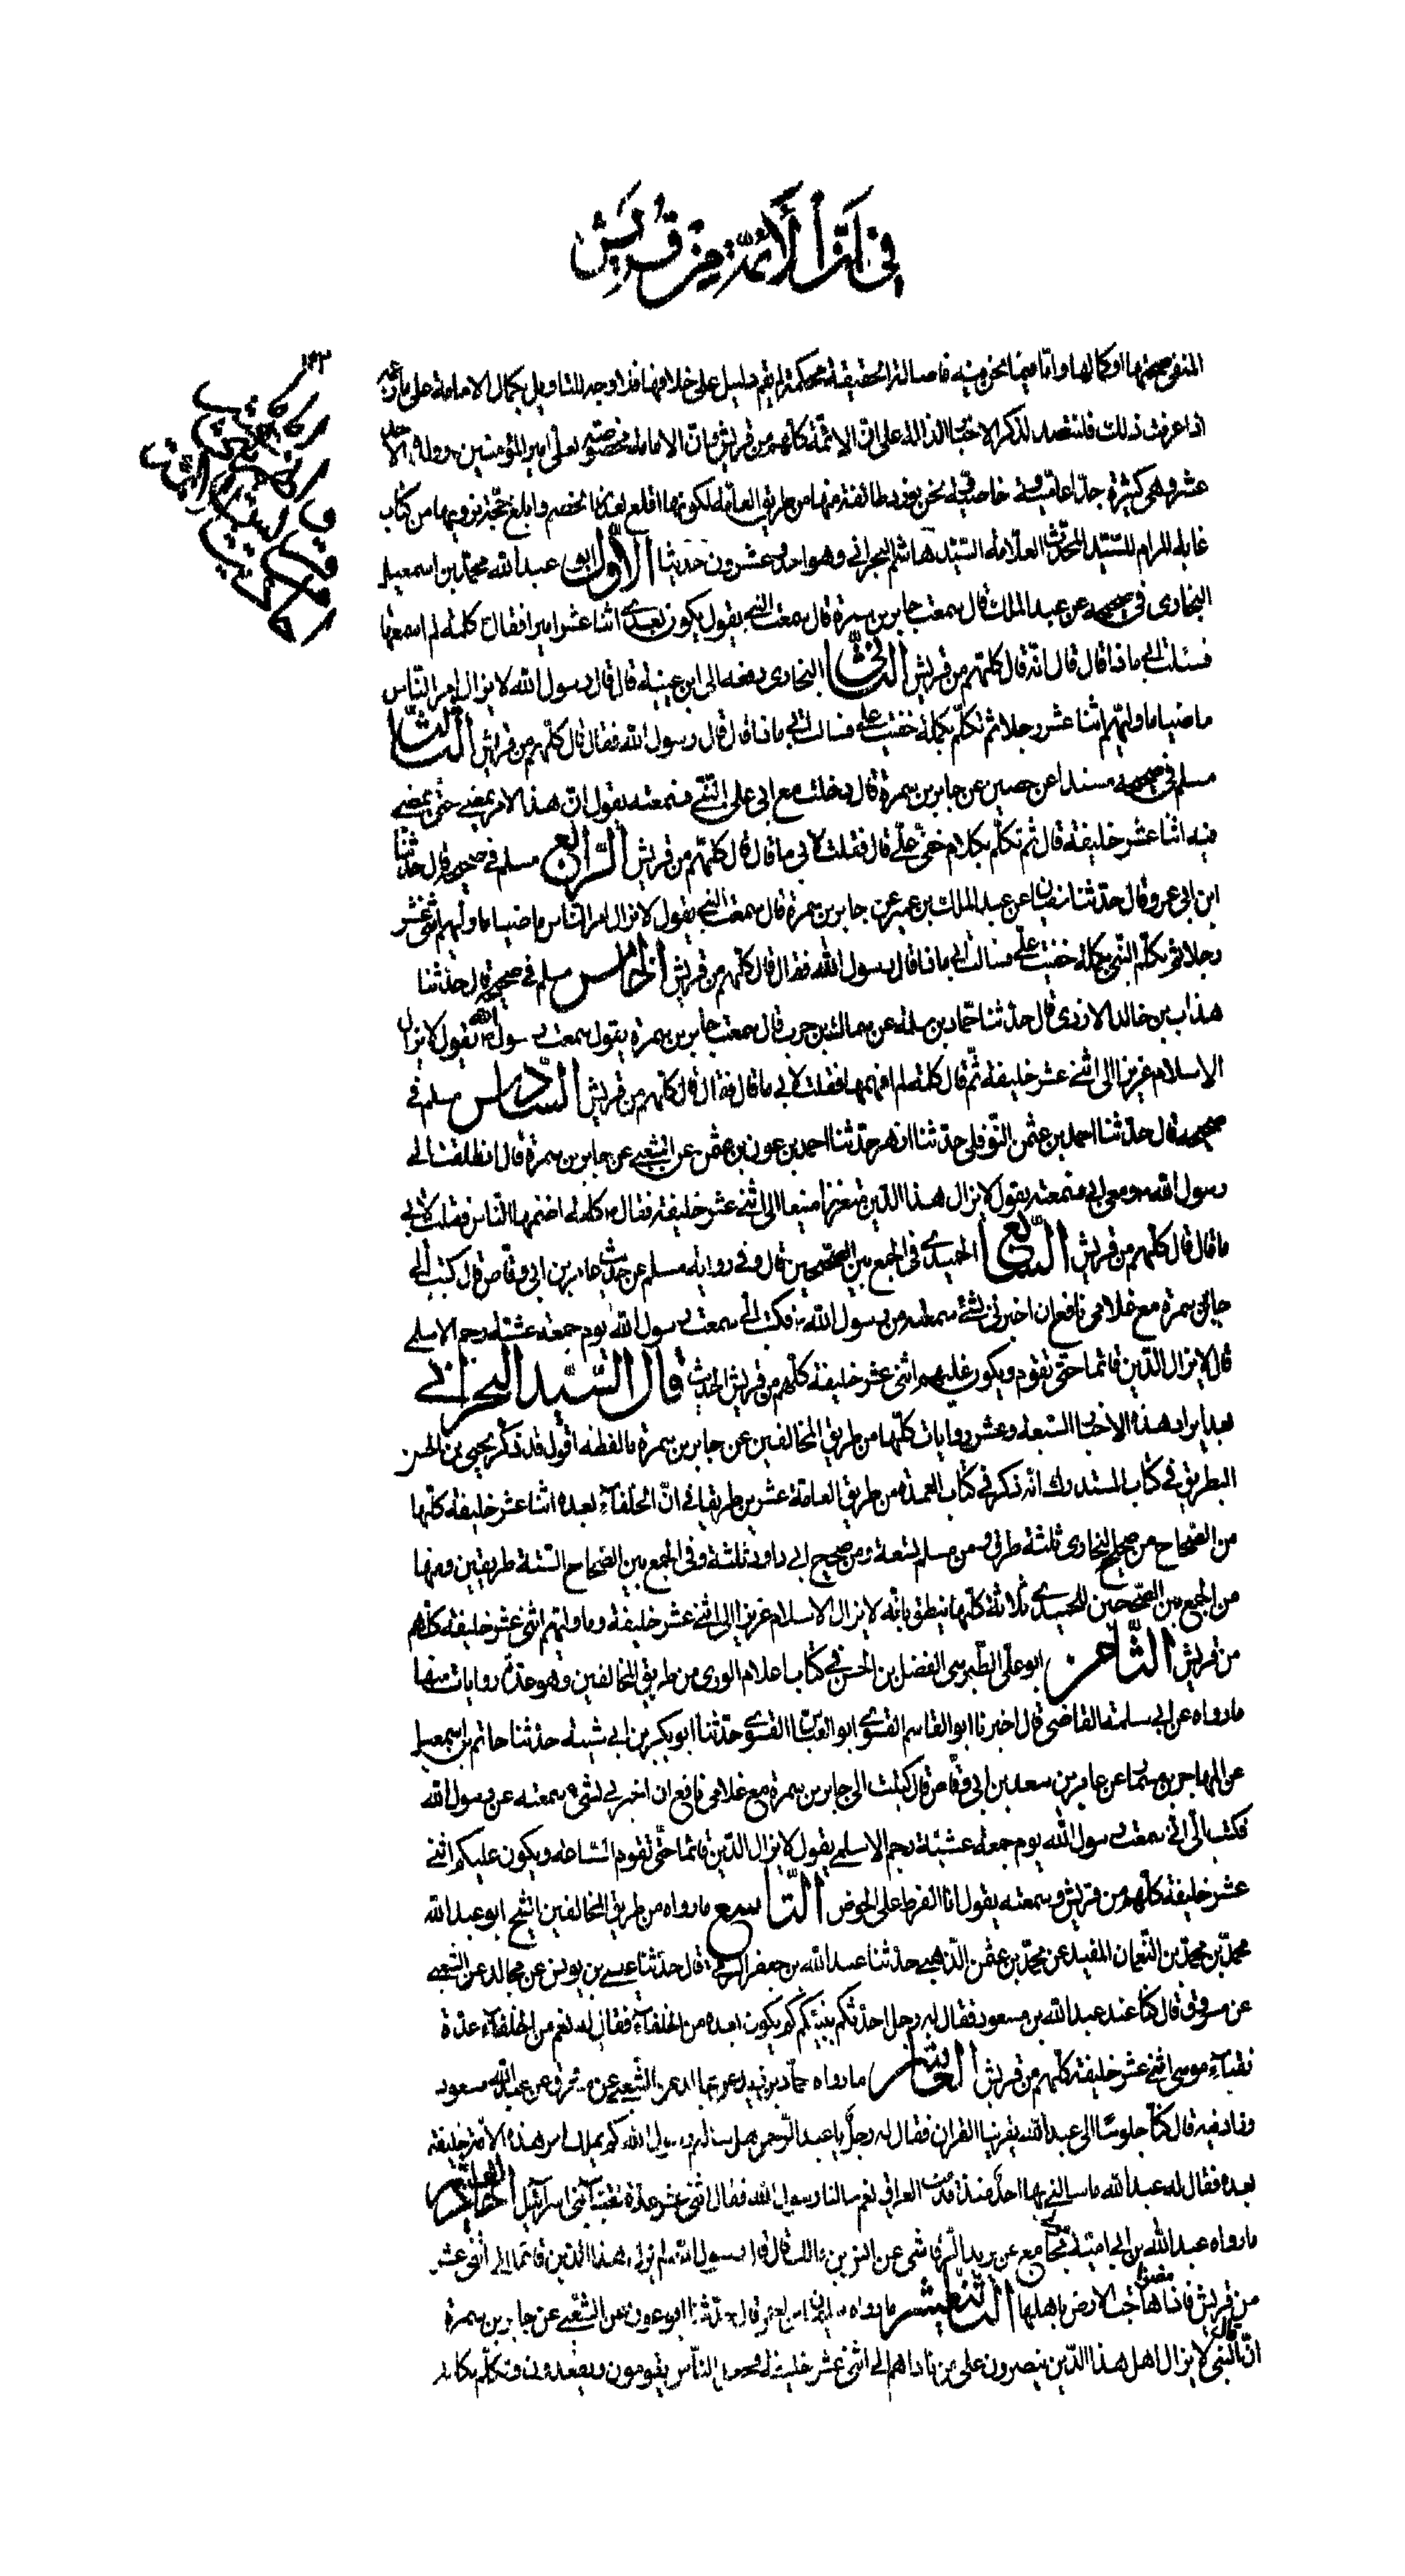 في ان الأئمة من قريش
١٤٣
المنفى صحتها او كمالها واما فيما نحن فيه فاصالة الحقيقة محكمة لم يقم دليل على خلافها فلا وجه للتاويل بكمال الامامة على ما
اذا عرفت ذلك فلنتصد لذكر الاخبار الدالة على ان الائمة كلهم من قريش وان الامامة مختصة بعلى امير المؤمنين وولده الاحد
عشر وهى كثيرة جدا عامية وخاصية نحن نورد طائفة منها من طريق العامة لكونها اقلع لعذر الخصم وابلغ حجية نرويها من كتاب
غاية المرام للسيد المحدث العلامة السيد هاشم البحرانى وهو احد وعشرون حديثا الاول ابو عبد الله محمد بن اسمعيل
البخارى فى صحيحه عن عبد الملك قال سمعت جابر بن سمرة قال سمعت النبى يقول يكون بعدى اثنا عشر اميرا فقال كلمة لم اسمعها
فسئلت ابى ماذا قال قال انه قال كلهم من قريش الثانى البخارى رفعه الى ابن عيينة قال قال رسول الله لا يزال امر الناس
ماضيا ما وليهم اثنا عشر رجلا ثم تكلم بكلمة خفيت على فسالت ابى ماذا قال قال رسول الله فقال قال كلهم من قريش الثالث
مسلم فى صحيحه مسندا عن حصين عن جابر بن سمرة قال دخلت مع ابى على النبى فسمعته يقول ان هذا الامر يمضى حتى يمضى
فيه اثنا عشر خليفة قال ثم تكلم بكلام خفى على قال فقلت لابى ما قال قال كلهم من قريش الرابع مسلم فى صحيحه قال حدثنا
ابن ابى عمر وقال حدثنا سفيان عن عبد الملك بن عمير عن جابر بن سمرة قال سمعت النبى يقول لا يزال امر الناس ماضيا ما وليهم اثنى عشر
رجلا ثم تكلم النبى بكلمة خفيت على فسالت ابى ماذا قال رسول الله فقال قال كلهم من قريش الخامس مسلم فى صحيحه قال حدثنا
هذاب بن خالد الازدى قال حدثنا حماد بن سلمة عن سماك بن حرب قال سمعت جابر بن سمرة يقول سمعت رسول الله يقول لا يزال
الاسلام عزيزا الى اثنى عشر خليفة ثم قال كلمة لم افهمها فقلت لابى ما قال فقال قال كلهم من قريش السادس مسلم فى
صحيحه قال حدثنا احمد بن عثمن النوفلى حدثنا ازهر حدثنا احمد بن عون بن عثمن عن الشعبى عن جابر بن سمرة قال انطلقت الى
رسول الله ومعى ابى فسمعته يقول لا يزال هذا الدين عزيزا منيعا الى اثنى عشر خليفة فقال كلمة اصمنيها الناس فقلت لابى
ما قال قال كلهم من قريش السابع الحميدى فى الجمع بين الصحيحين قال وفى رواية مسلم عن حديث عامر بن ابى وقاص قال كتبت الى
جابر بن سمرة مع غلامى نافع ان اخبرنى بشئ سمعته من رسول الله فكتب الى سمعت رسول الله يوم جمعة عشية رجم الاسلمى
قال لا يزال الدين قائما حتى تقوم ويكون عليهم اثنى عشر خليفة كلهم من قريش الحديث قال السيد البحرانى
بعد ايراد هذه الاخبار السبعة وعشر روايات كلها من طريق المخالفين عن جابر بن سمرة ما لفظه اقول قد ذكر يحيى بن الحسن
البطريق فى كتاب المستدرك انه ذكر فى كتاب العمدة من طريق العامة عشرين طريقا فى ان الخلفاء بعده اثنا عشر خليفة كلها
من الصحاح من صحيح البخارى ثلثة طرق ومن مسلم تسعة ومن صحيح ابى داود ثلثة وفى الجمع بين الصحاح الستة طريقين ومنها
من الجمع بين الصحيحين للحميدى ثلاثة كلها ينطق بانه لا يزال الاسلام عزيزا الى اثنى عشر خليفة وما وليهم اثنى عشر خليفة كلهم
من قريش الثامن ابو على الطبرسى الفضل بن الحسن فى كتاب اعلام الورى من طريق المخالفين وهو عدة روايات منها
ما رواه عن ابى سلمة القاضى قال اخبرنا ابو القاسم القسوى ابو العباس القسوى حدثنا ابو بكر بن ابى شيبة حدثنا حاتم بن اسمعيل
عن المهاجر بن مسمار عن عامر بن سعد بن ابى وقاص قال كتبت الى جابر بن سمرة مع غلامى نافع ان اخبرنى بشئ سمعته عن رسول الله
فكتب الى انى سمعت رسول الله يوم جمعة عشية رجم الاسلمى يقول لا يزال الدين قائما حتى تقوم الساعة ويكون عليكم اثنى
عشر خليفة كلهم من قريش وسمعته يقول انا الفرط على الحوض التاسع ما رواه من طريق المخالفين الشيخ ابو عبد الله
محمد بن محمد بن النعمان المفيد عن محمد بن عثمن الذهبى حدثنا عبد الله بن جعفر الرقى قال حدثنا عيسى بن يونس عن مجالد عن الشعبى
عن مسروق قال كنا عند عبد الله بن مسعود فقال له رجل احدثكم نبيكم كم يكون بعده من الخلفاء فقال له نعم من الخلفاء عدة
نقباء موسى اثنى عشر خليفة كلهم من قريش العاشر ما رواه حماد بن زيد عن مجالد عن الشعبى عن مسروق عن عبد الله مسعود
وزاد فيه قال كنا جلوسا الى عبد الله يقرئنا القران فقال له رجل يا عبد الرحمن هل سالتم رسول الله كم يملك امر هذه الامة خليفة
بعده فقال له عبد الله ما سالنى بها احد منذ قدمت العراق نعم سالنا رسول الله فقال اثنى عشر عدة نقباء بنى اسرائيل الحاديعشر
ما رواه عبد الله بن ابى امية عن يزيد الرقاشى عن انس بن مالك قال قال رسول الله لم يزل هذا الدين قائما الى اثنى عشر
من قريش فاذا مضوا ماجت الارض باهلها الثانيعشر ما رواه قال حدثنا ابو عون عن الشعبى عن جابر بن سمرة
ان النبى قال لا يزال اهل هذا الدين ينصرون على من ناداهم الى اثنى عشر خليفة فجعل الناس يقومون ويقعدون وتكلم بكلمة